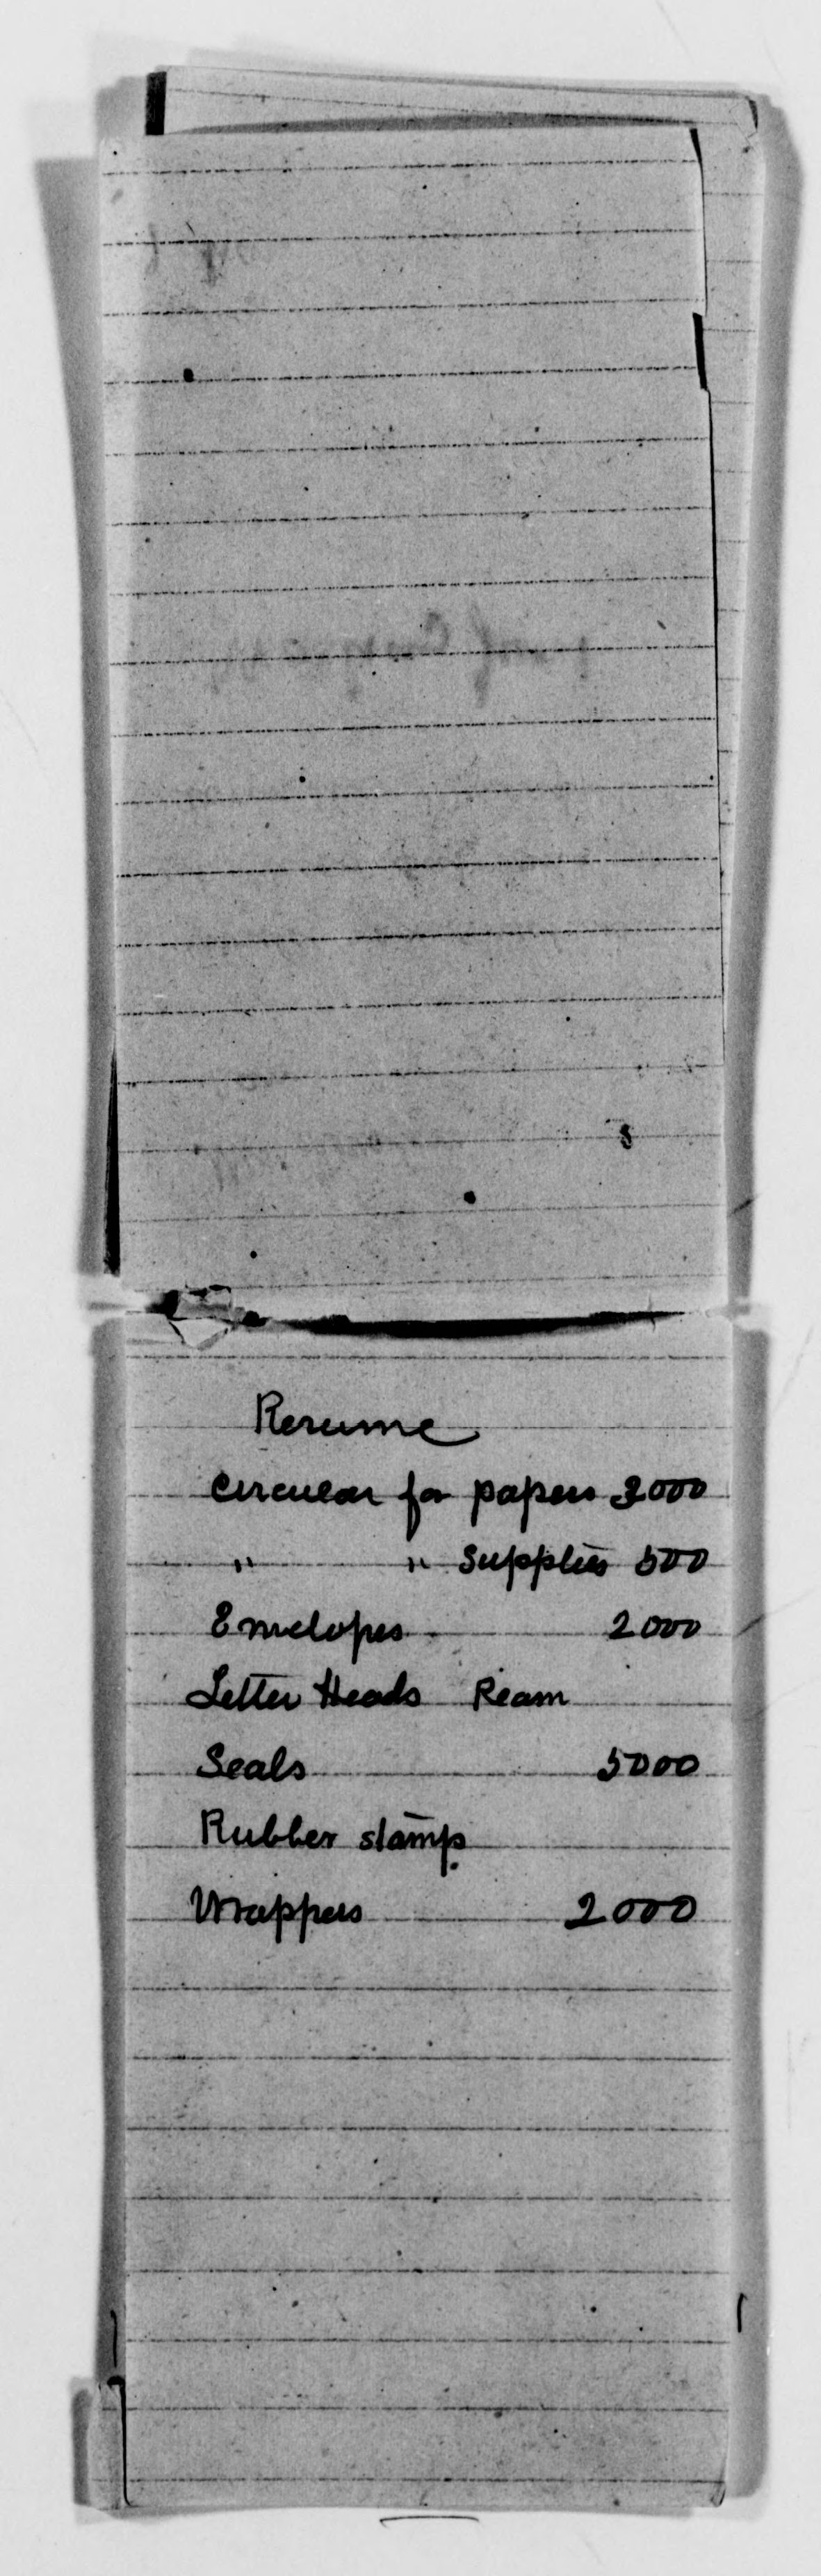 Resume
Circular for papers 3000
" " Supplies 500
Envelopes 2000
Letter Heads Ream
Seals 5000
Rubber stamp
Wrappers 2000